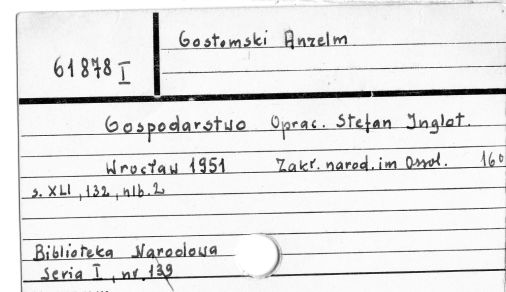 Gostomski Anzelm
61878 I
Gospodarstwo Oprac. Stefan Inglot.
Wrocław 1951 Zakł. narod. im Ossol. 16°
s. XLI, 132, nlb. 2
Biblioteka Narodowa
Seria I, nr. 139